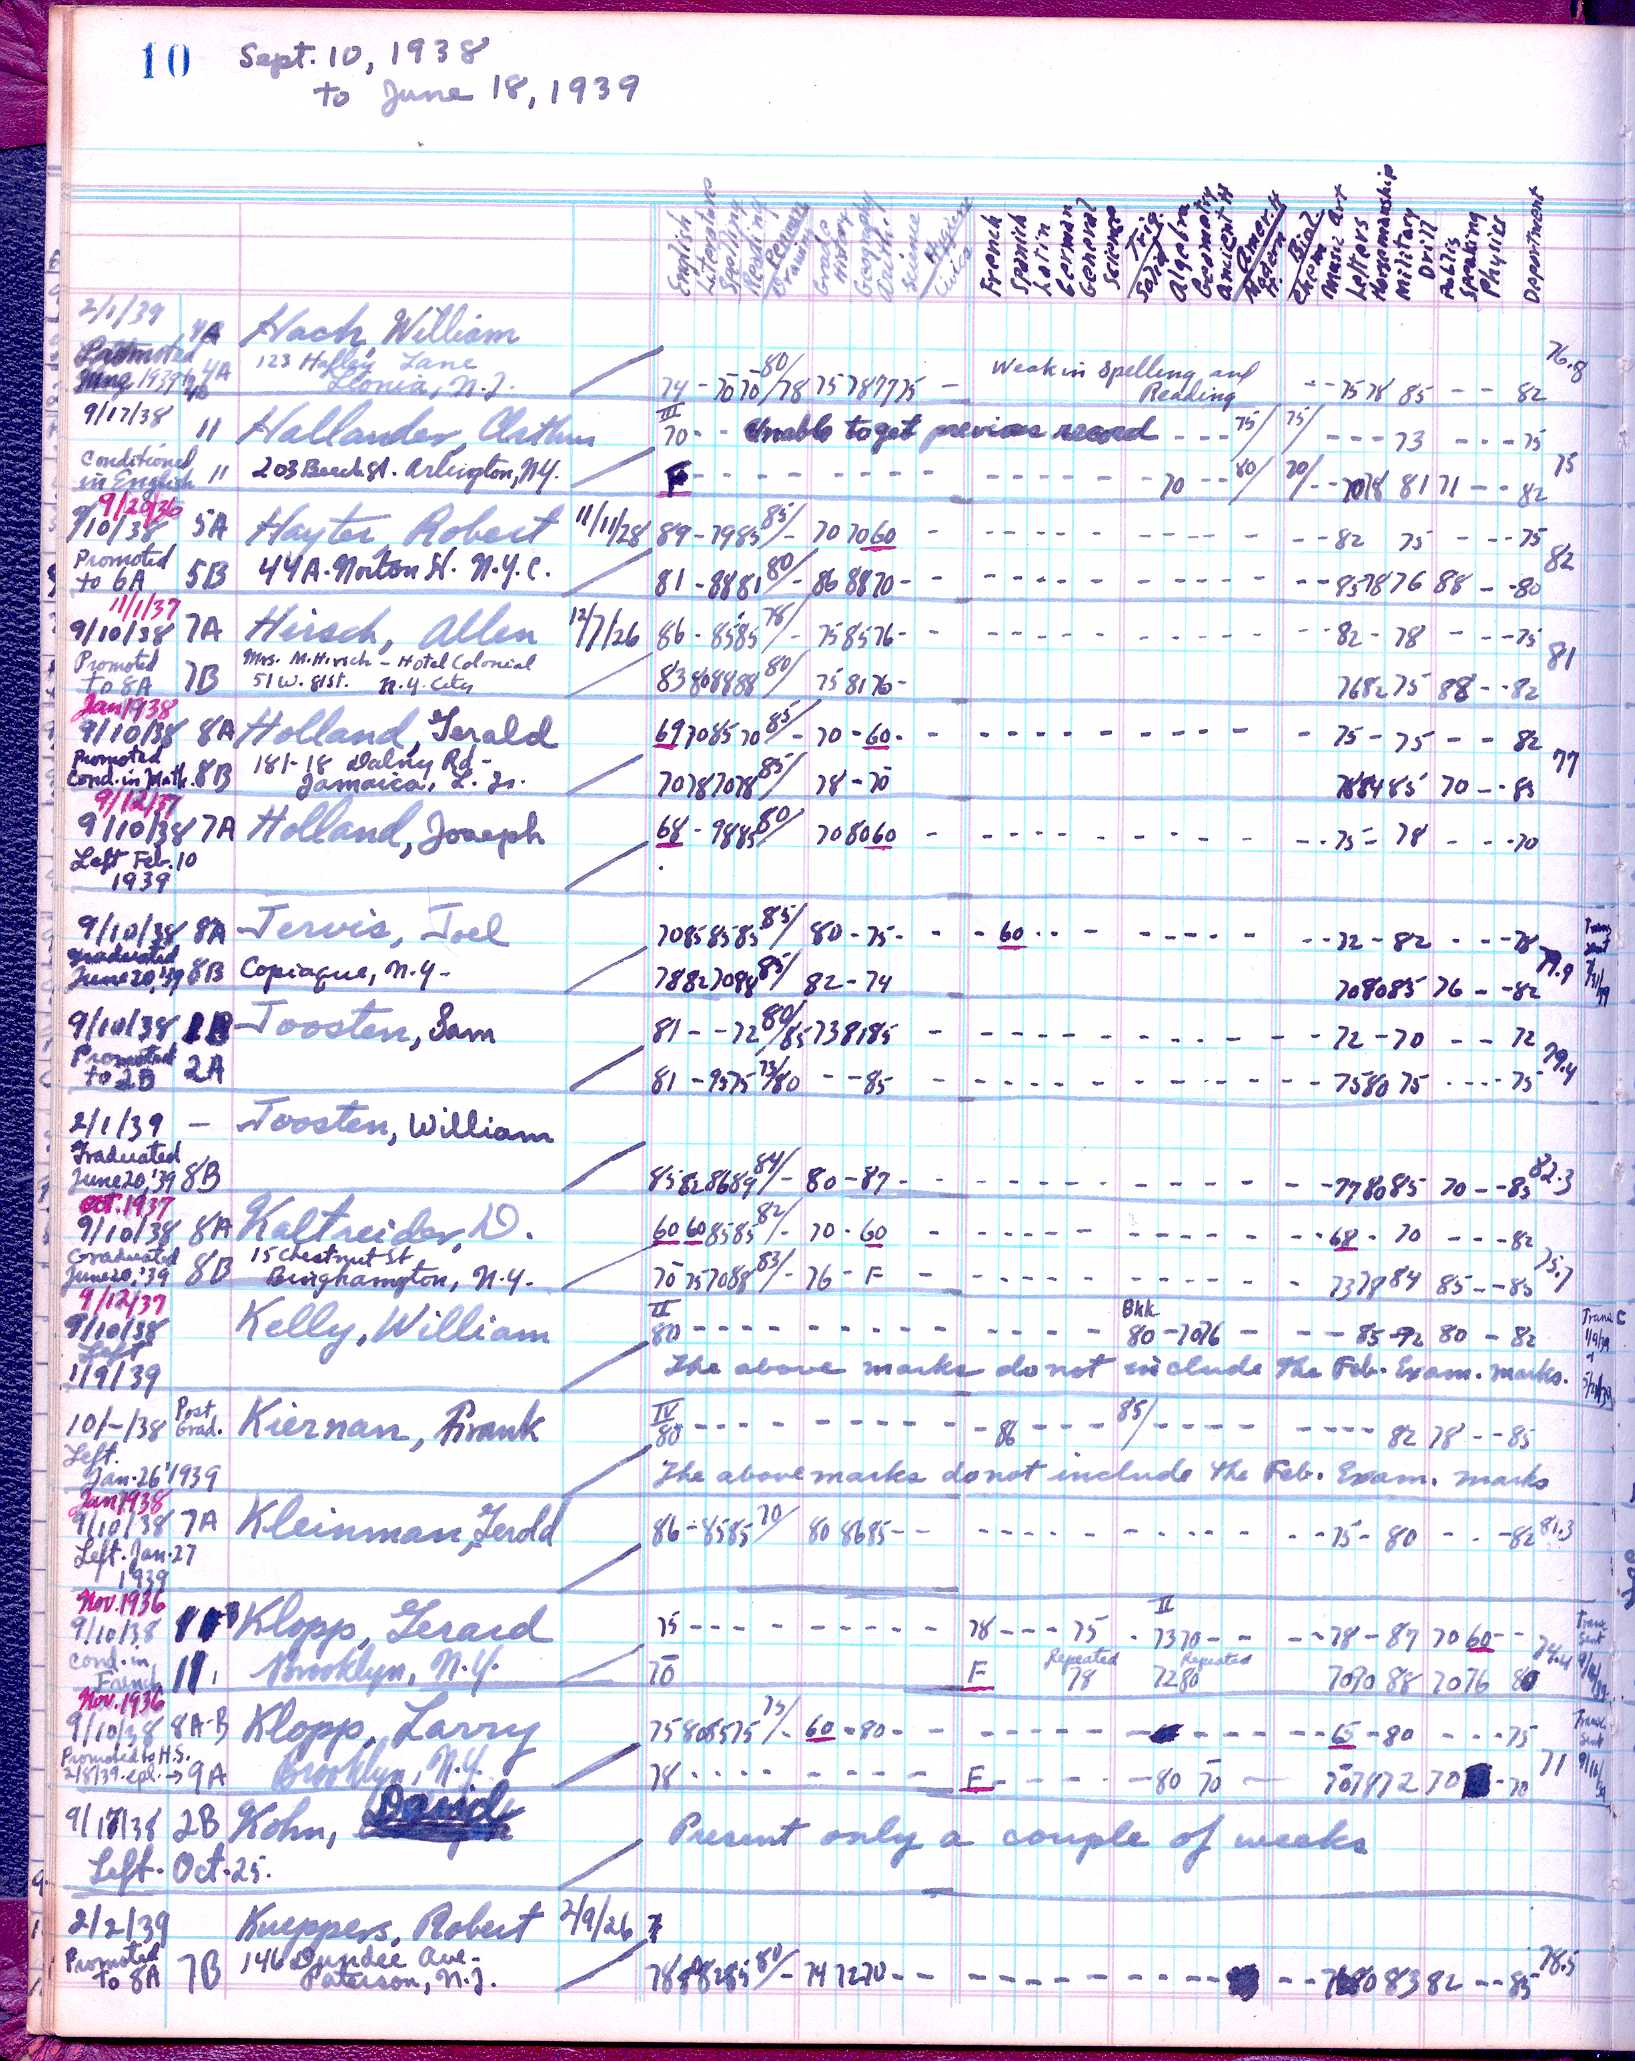 10 Sept. 10, 1938
to June 18, 1939
English Literature Spelling Reading Penman Drawing Grade History Geography Arith. Science Hygiene Civics French Spanish Latin German General Science Trig. Solid Algebra Geometry Ancient H Amer. H Modern H. Biol. Chem Music Art Letters Horsemanship Military Drill Public Speaking Physics Department
2/1/39 4A Hach, William
Promoted 4A 123 Lane 80/ Weak in Spelling and 76.8
June 1939 to Leonia, N.J. 74 - 70 70 78 75 78 77 75 - Reading - - 75 78 85 - - 82
9/17/38 11 Hallander, Arthur III 70 - - Unable to get previous record - - - 75/ 75/ - - - 73 - - - 75
Conditioned 75
in English 11 203 Beech St. Arlington, N.Y. F - - - - - - - - - - - - - 70 - - 80/ 70/ - - 70 78 81 71 - - 82
9/20/36
9/10/38 5A Hayter, Robert 11/11/28 89 - 79 85 85/ - 70 70 60 - - - - - - - - - - - - 82 75 - - - 75
Promoted 82
to 6A 5B 44A. Norton St. N.Y.C. 81 - 88 81 80/ - 86 88 70 - - - - - - - - - - - - - 85 78 76 88 - - 80
11/1/37
9/10/38 7A Hirsch, Allen 12/7/26 86 - 85 85 78/ - 75 85 76 - - - - - - - - - - - - - 82 - 78 - - - 75
Promoted Mrs. M. Hirsch - Hotel Colonial 81
to 8A 7B 51 W. 81 St. N.Y. City 83 80 88 88 80/ 75 81 76 - 76 82 75 88 - - 82
Jan 1938
9/10/38 8A Holland, Gerald 69 70 85 70 85/ - 70 - 60 - - - - - - - - - - - - 75 - 75 - - 82
Promoted 181-18 Dalny Rd - 77
Cond. in Math. 8B Jamaica, L. Is. 70 78 70 78 85/ 78 - 70 78 84 85 70 - - 83
9/12/37
9/10/38 7A Holland, Joseph 68 - 98 85 80/ 70 80 60 - - - - - - - - - - - - 75 - 78 - - - 70
Left Feb. 10
1939
9/10/38 8A Jervis, Joel 70 85 85 85 85/ 80 - 75 - - - 60 - - - - - - - - - - 72 - 82 - - - 78 Trans sent
Graduated 79.9
June 20, '39 8B Copiague, N.Y. - 78 82 70 88 85/ 82 - 74 70 80 85 76 - - 82
9/10/38 1B Joosten, Sam 81 - - 72 80/ 85 73 81 85 - - - - - - - - - - - - 72 - 70 - - 72
Promoted 79.4
to 2B 2A 81 - 95 75 75/ 80 - - 85 - - - - - - - - - - - - 75 80 75 - - - - 75
2/1/39 - Joosten, William
Graduated
June 20, '39 8B 85 82 86 89 84/ - 80 - 87 - - - - - - - - - - - - - 77 80 85 70 - - 85 82.3
Oct. 1937
9/10/38 8A Kaltreider, D. 60 60 85 85 82/ - 70 - 60 - - - - - - - - - - - - 68 - 70 - - - 82
Graduated 15 Chestnut St
June 20, '39 8B Binghampton, N.Y. - 70 75 70 88 83/ - 76 - F - - - - - - - - - - - - 73 78 84 85 - - 85 75.7
9/12/37
9/10/38 Kelly, William II 80 - - - - - - - - - - - - - Bkk 80 - 70 76 - - - 85 - 92 80 - 82
Left
1/9/39 The above marks do not include the Feb. Exam. marks.
10/-/38 Post Grad. Kiernan, Frank IV 80 - - - - - - - - - - 86 - - - 85/ - - - - - - - - 82 78 - - 85
Left.
Jan. 26 1939 The above marks do not include the Feb. Exam. marks
Jan 1938
9/10/38 7A Kleinman, Jerold 86 - 85 85 70/ 80 86 85 - - - - - - - - - - - - 75 - 80 - - - 82 81.3
Left. Jan. 27
1939
Nov. 1936
9/10/38 Klopp, Gerard 75 - - - - - - - - - 78 - - - 75 - II 73 70 - - - - 78 - 87 70 60 - - Trans Sent
Cond. in Repeated Repeated
French 11 Brooklyn, N.Y. 70 F 78 72 80 70 90 88 70 76 80
Nov. 1936
9/10/38 8A-B Klopp, Larry 75 80 85 75 75/ - 60 - 80 - - - - - - - - - - - 65 - 80 - - - 75
Promoted to H.S. 71
2/8/39 → 9A Brooklyn, N.Y. 78 - - - - - - - - - F - - - - - 80 70 - 70 78 72 70 - 70
9/17/38 2B Kohn, David Present only a couple of weeks
Left. Oct. 25.
2/2/39 Kueppers, Robert 2/9/26
Promoted 146 Dundee Ave. -
to 8A 7B Paterson, N.J. 80/ - 74 72 70 - - - - - - - - - - 80 83 82 - - 85 78.5